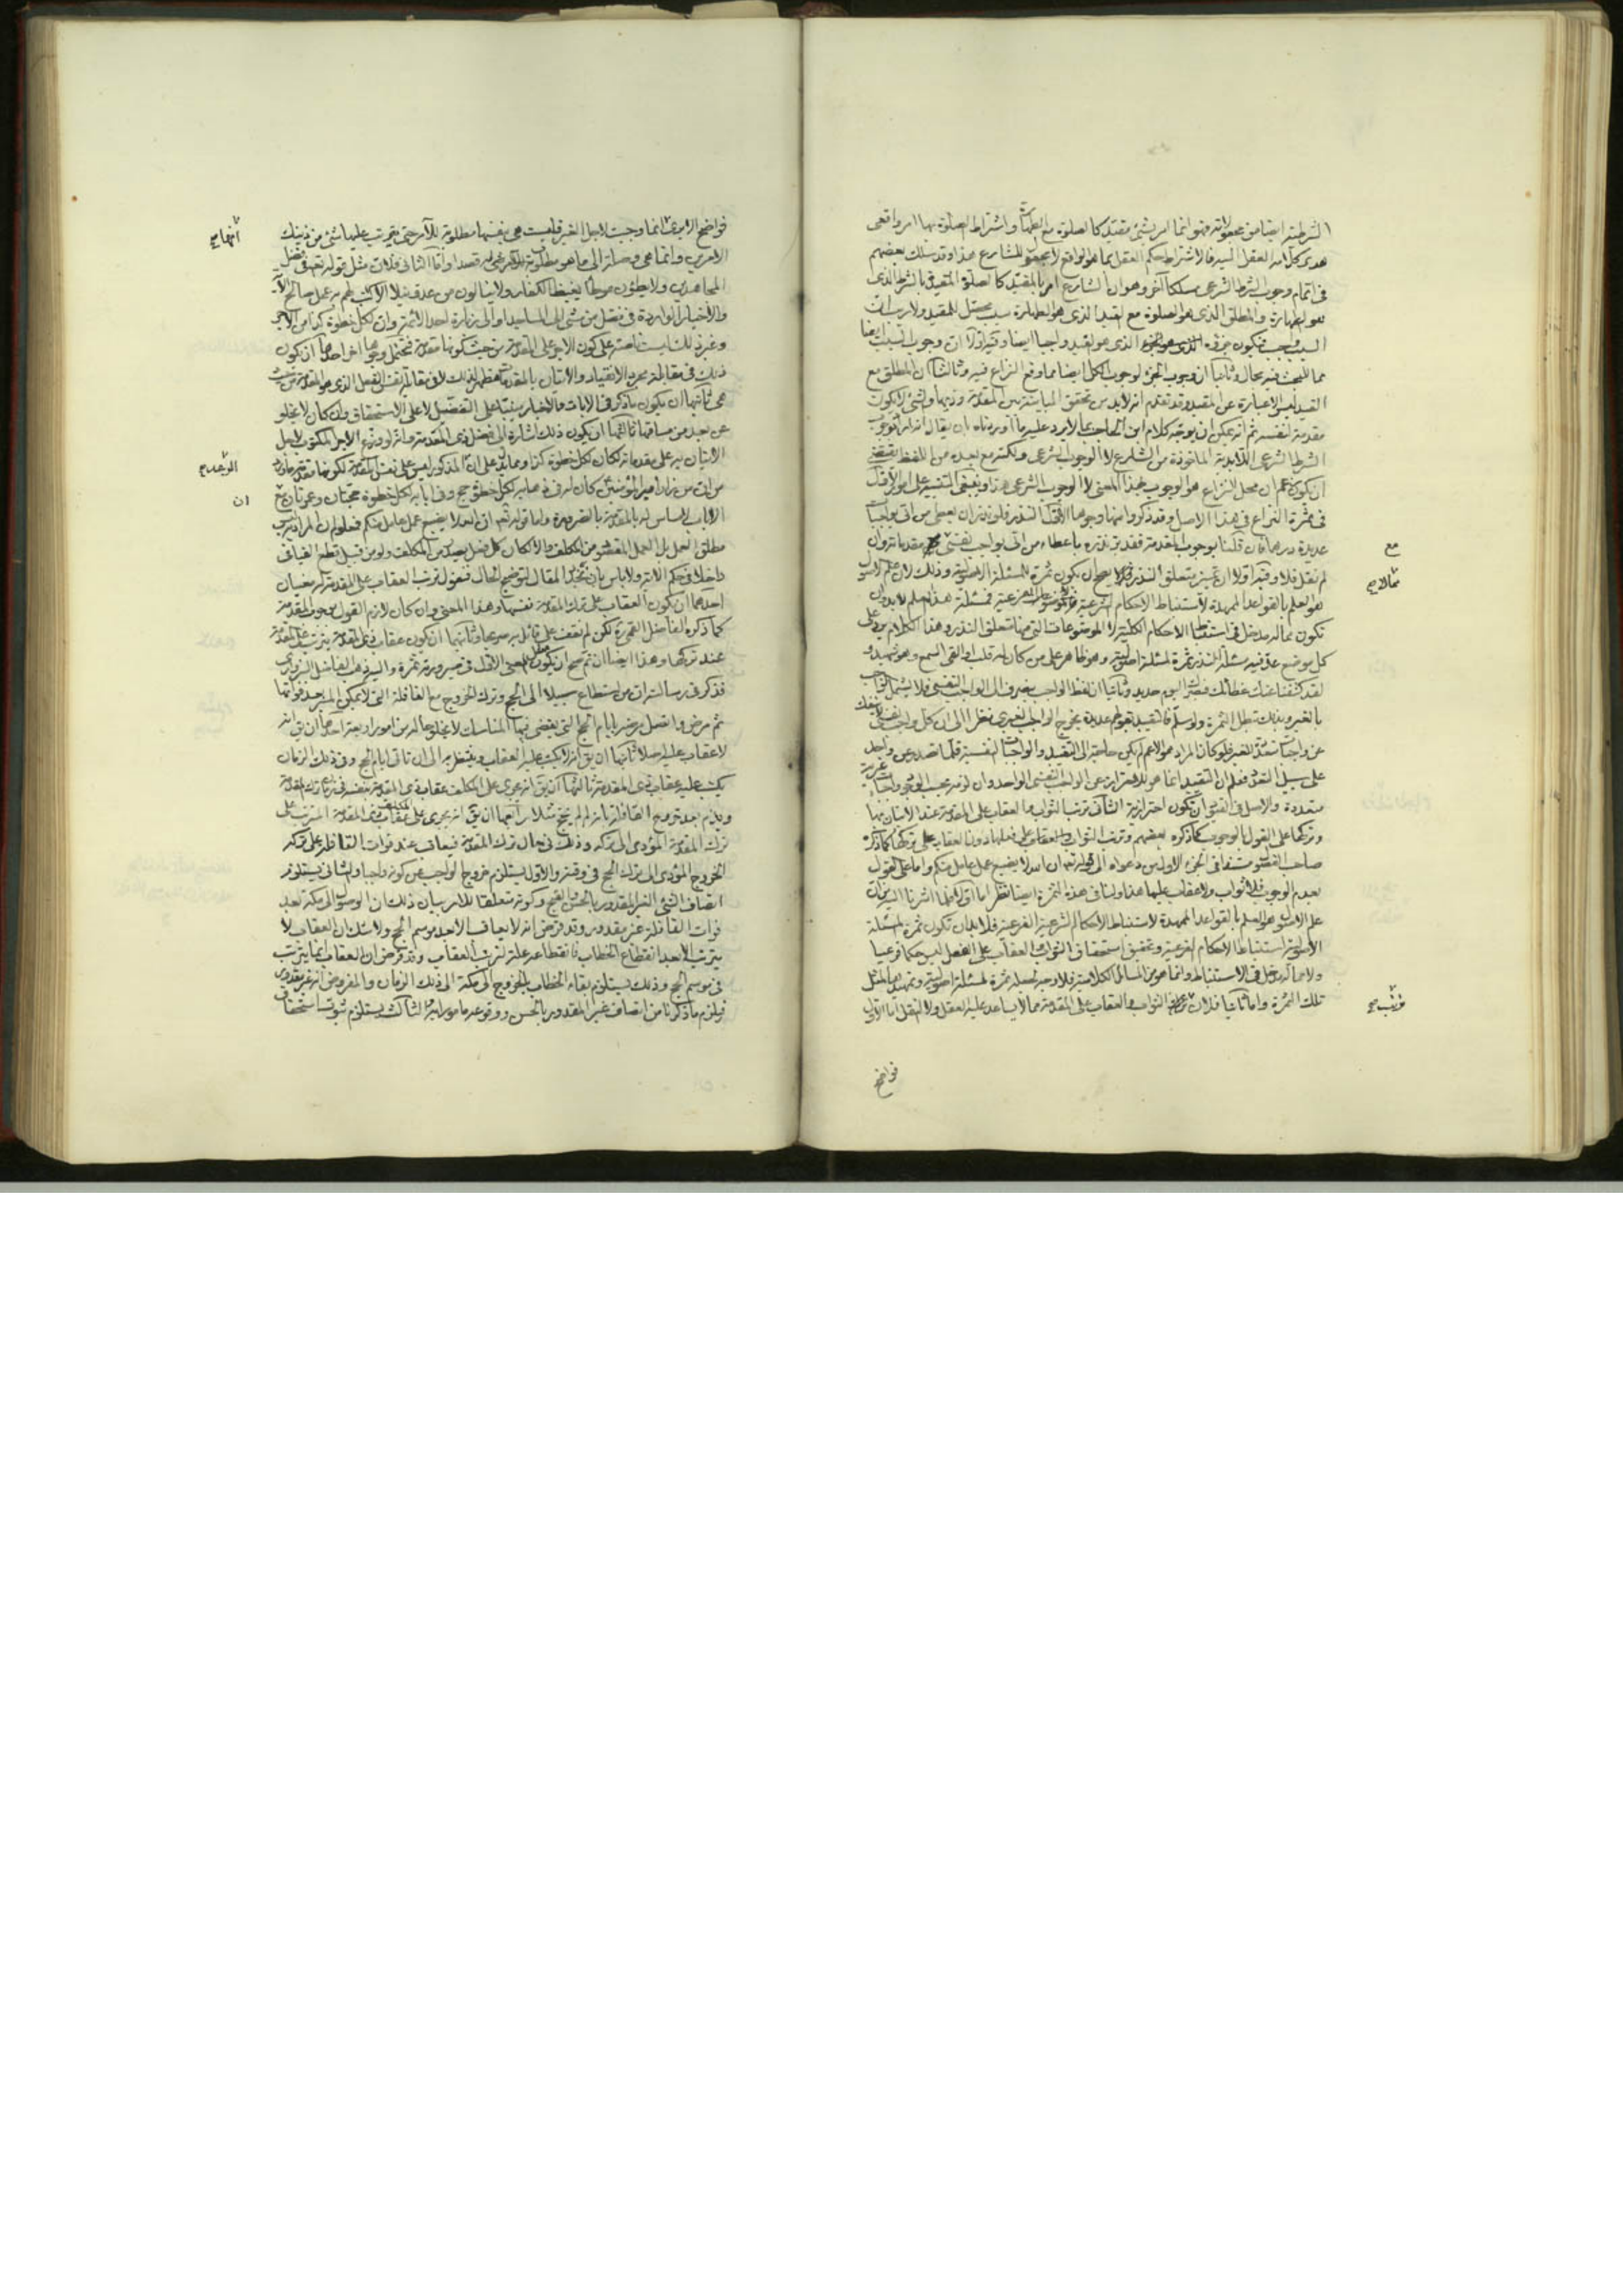 الشرطية ايضا من مجعولاته فهو انما امر بشئ مقيد كالصلوة مع الطهارة واشتراط الصلوة بها امر واقعى
العقل فالاشتراط حكم العقل بما هو الواقع لا مجعول للشارع هذا وقد سلك بعضهم
فى اتمام وجوب الشرط الشرعى مسلكا آخر وهو ان الشارع امر بالمقيد كالصلوة المقيدة بالشرط الذى
هو الطهارة والمطلق الذى هو الصلوة مع القيد الذى هو الطهارة سبب محصل للمقيد ولا ريب ان
السبب فيكون جزؤه الذى هو القيد واجبا ايضا وفيه اولا ان وجوب السبب ايضا
مما للبحث فيه مجال وثانيا ان وجوب الجزء لوجوب الكل ايضا مما وقع النزاع فيه وثالثا ان المطلق مع
القيد ليس الا عبارة عن المقيد وقد تقدم انه لا بد من تحقق المباينة بين المقدمة وذيها والشئ لا يكون
مقدمة لنفسه ثم انه يمكن ان يوجه كلام ابن الحاجب بما لا يرد عليه ما اوردناه بان يقال انه اراد بوجوب
الشرط الشرعى اللابدية الماخوذة من الشارع لا الوجوب الشرعى ولكنه مع بعده من اللفظ يقتضى
ان يكون زعم ان محل النزاع هو الوجوب بهذا المعنى لا الوجوب الشرعى هذا وينبغى التنبيه على امور الاول
فى ثمرة النزاع فى هذا الاصل وقد ذكروا منها وجوها الاول النذر فلو نذر ان يعطى من اتى بواجبات
عديدة درهما فان قلنا بوجوب المقدمة فقد بر نذره باعطاء من اتى بواجب نفسى مقدماته وان
لم نقل فلا وفيه اولا ان تميز متعلق النذر لا يصح ان يكون ثمرة للمسئلة الاصولية وذلك لان علم الاصول
هو العلم بالقواعد الممهدة لاستنباط الاحكام الشرعية الفرعية فمسئلة هذا العلم لا بد وان
تكون مما له مدخل فى استنباط الاحكام الكلية لا الموضوعات التى منها متعلق النذر وهذا الكلام يرد على
كل موضع عد فيه مسئلة النذر ثمرة لمسئلة اصولية وهو ظاهر على من كان له قلب او القى السمع وهو شهيد
لقد كشفنا عنك غطائك فبصرك اليوم حديد وثانيا ان لفظ الواجب ينصرف الى الواجب النفسى فلا يشمل الواجب
بالغير وبذلك تبطل الثمرة ولو سلم فالتقييد بقولهم عديدة يخرج الواجب الغيرى نظرا الى ان كل واجب نفسى لا ينفك
عن واجبات عديدة للغير فلو كان المراد هو الاعم لم يكن حاجة الى التقييد والواجبات النفسية قلما تصدر عن واحد
على سبيل التعدد فعلم ان التقييد انما هو للاحتراز عن الواجب النفسى الواحد وان لوزمه بحسب الوجود واجبات غيرية
متعددة والاصل فى القيود ان تكون احترازية الثانى ترتب الثواب والعقاب على المقدمة عند الاتيان بها
وتركها على القول بالوجوب كما ذكره بعضهم وترتب الثواب والعقاب على فعلها دون العقاب على تركها كما ذكره
صاحب القصول مستندا فى الجزء الاول من دعواه الى قوله تعالى ان الله لا يضيع عمل عامل منكم واما على القول
بعدم الوجوب فلا ثواب ولا عقاب عليها هذا ولنا فى هذه الثمرة ايضا نظر اما اولا فلما اشرنا اليه من ان
علم الاصول هو العلم بالقواعد الممهدة لاستنباط الاحكام الشرعية الفرعية فلا بد ان تكون ثمرة المسئلة
الاصولية استنباط الاحكام الفرعية وتحقيق استحقاق الثواب والعقاب على الفعل ليس حكما فرعيا
ولا مما له دخل فى الاستنباط وانما هو من المسائل الكلامية فلا وجه لجعله ثمرة لمسئلة اصولية وتمهيدها لمثل
تلك الثمرة واما ثانيا فلان ترتب الثواب والعقاب على المقدمة مما لا يساعد عليه العقل ولا النقل اما الاول
مع
فواضح
فواضح لانها انما وجبت لاجل الغير فليست هى بنفسها مطلوبة للآمر حتى يترتب عليها شئ من ذينك
الامرين وانما هى وصلة الى ما هو مطلوب للآمر قصدا واما الثانى فلان مثل قوله تعالى فى فضل
المجاهدين ولا يطئون موطئا يغيظ الكفار ولا ينالون من عدو نيلا الا كتب لهم به عمل صالح الآية
والاخبار الواردة فى فضل من مشى الى المساجد او الى زيارة احد الائمة وان لكل خطوة كذا من الاجر
وغير ذلك ليست ناصة على كون الاجر على المقدمة من حيث كونها مقدمة فتحتمل وجوها اخر احدها ان يكون
ذلك فى مقابلة مجرد الانقياد والاتيان بالمقدمات لا فى مقابلة نفس الفعل الذى هو المقدمة من حيث
هى ثانيها ان يكون ما ذكر فى الايات والاخبار مبنيا على التفضل لا على الاستحقاق وان كان لا يخلو
عن بعد من مساقها ثالثها ان يكون ذلك اشارة الى فضل ذى المقدمة وانه لو وزع الاجر المكتوب لاجل
الاتيان به على مقدماته لكان لكل خطوة كذا ومما يدل على ان المذكور ليس على نفس المقدمة لكونها مقدمة ما ورد
من ان من زار امير المؤمنين كان له فى ذهابه لكل خطوة حج وفى ايابه لكل خطوة حجتان وعمرتان مع
الاياب ليس له بالمقدمة بالضرورة واما قوله تعالى ان الله لا يضيع عمل عامل منكم فمعلوم ان المراد به ليس
مطلق العمل بل العمل المقصود من المكلف والا لكان كل فعل يصدر من المكلف ولو من قبيل قطع الفيافى
داخلا فى حكم الاية ولا باس بان نجدد المقال لتوضيح الحال فنقول ترتب العقاب على المقدمة له معنيان
احدهما ان يكون العقاب على ترك المقدمة نفسها وهذا المعنى وان كان لازم القول بوجوب المقدمة
كما ذكره الفاضل القمى ره لكن لم نقف على قائل به صريحا وثانيهما ان يكون عقاب ذى المقدمة يترتب على المقدمة
عند تركها وهذا ايضا ان تم صح ان يكون مثل المعنى الاول فى صيرورته ثمرة واليه ذهب الفاضل السبزوارى
فذكر فى رسالته ان من استطاع سبيلا الى الحج وترك الخروج مع القافلة التى لا يمكن المسير بعد فواتها
ثم مرض واتصل مرضه بايام الحج التى يقضى فيها المناسك لا يخلو حاله من امور اربعة احدها ان يق انه
لا عقاب عليه اصلا ثانيها ان يق انه لا يكتب عليه العقاب وينتظر به الى ان تاتى ايام الحج وفى ذلك الزمان
يكتب عليه عقاب ذى المقدمة ثالثها ان يق انه يجرى على المكلف عقاب ذى المقدمة نفسه فى زمان ترك المقدمة
ويلزم بعد خروج القافلة بانه لم يحج مثلا رابعها ان يق انه يجرى على المكلف عقاب ذى المقدمة المترتب على
ترك المقدمة المؤدى الى تركه وذلك فى حال ترك المقدمة فيعاقب عند فوات القافلة على ترك
الخروج المؤدى الى ترك الحج فى وقته والاول يستلزم خروج الواجب عن كونه واجبا والثانى يستلزم
اتصاف الشئ الغير المقدور بالحسن والقبح وكونه متعلقا للامر بيان ذلك ان الوصول الى مكة بعد
فوات القافلة غير مقدور وقد فرض انه لا يعاقب الا بعد موسم الحج ولا شك ان العقاب لا
يترتب الا بعد انقطاع الخطاب فانقطاعه علة لترتب العقاب وقد فرض ان العقاب انما يترتب
فى موسم الحج وذلك يستلزم بقاء الخطاب بالخروج الى مكة الى ذلك الزمان والمفروض انه غير مقدور
فيلزم ما ذكرنا من اتصاف غير المقدور بالحسن ووقوعه مامورا به والثالث يستلزم ثبوت استحقاق
ان